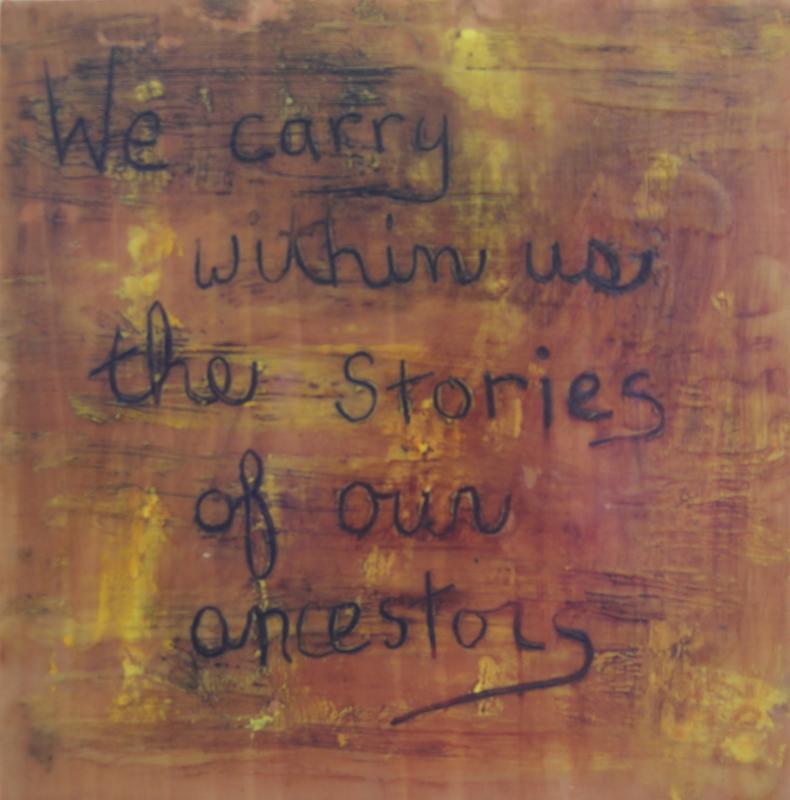 We carry
within us
the Stories
of our
ancestors